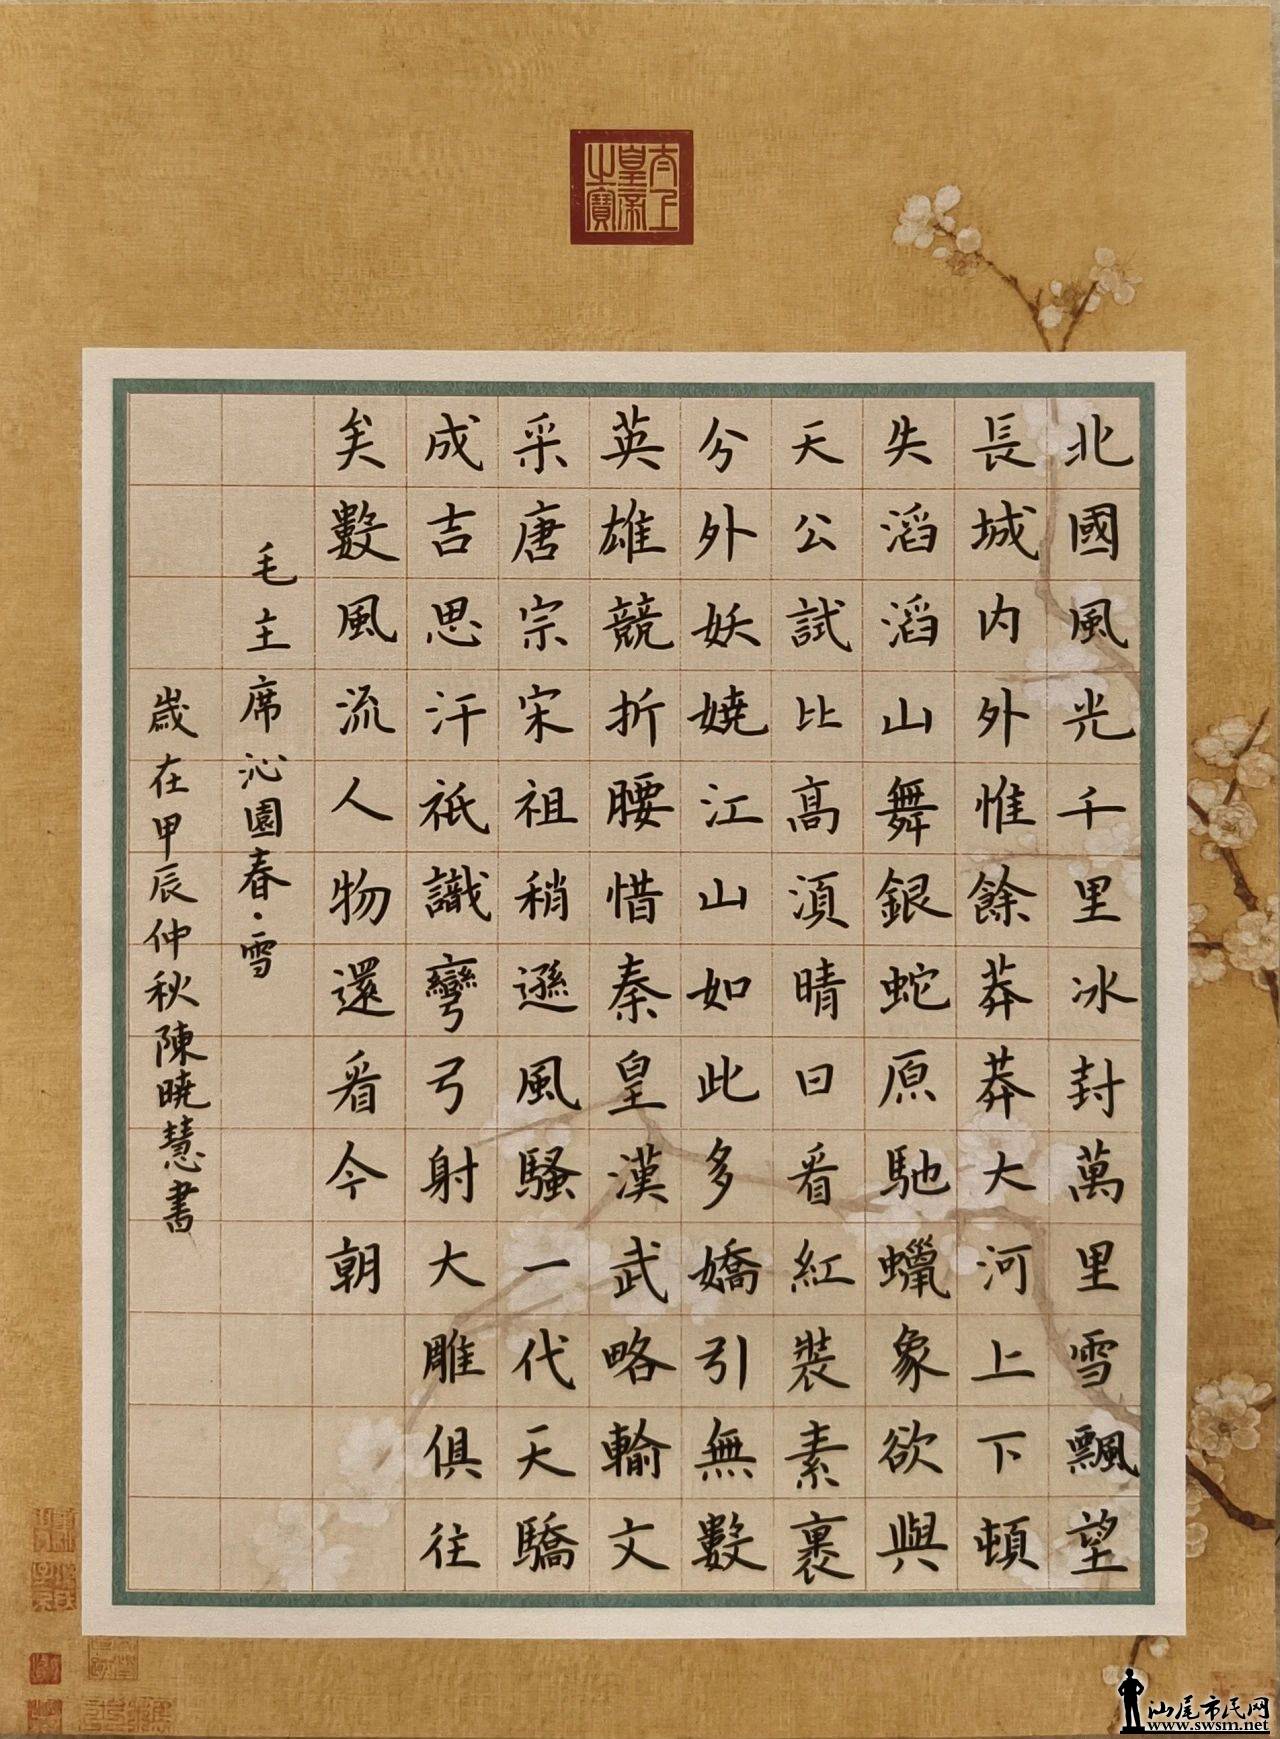 太上
皇帝
之寶
北國風光千里冰封萬里雪飄望
長城内外惟餘莽莽大河上下頓
失滔滔山舞銀蛇原馳蠟象欲與
天公試比高須晴日看紅裝素裹
分外妖嬈江山如此多嬌引無數
英雄競折腰惜秦皇漢武略輸文
采唐宗宋祖稍遜風騷一代天驕
成吉思汗祇識彎弓射大雕俱往
矣數風流人物還看今朝
毛主席沁園春·雪
歲在甲辰仲秋陳曉慧書
汕尾市民网
www.swsm.net